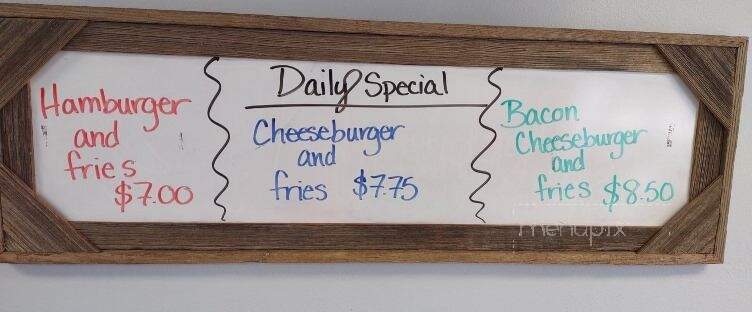 Daily Special
Hamburger
and
fries
$7.00
Cheeseburger
and
fries $7.75
Bacon
Cheeseburger
and
fries $8.50
menupix